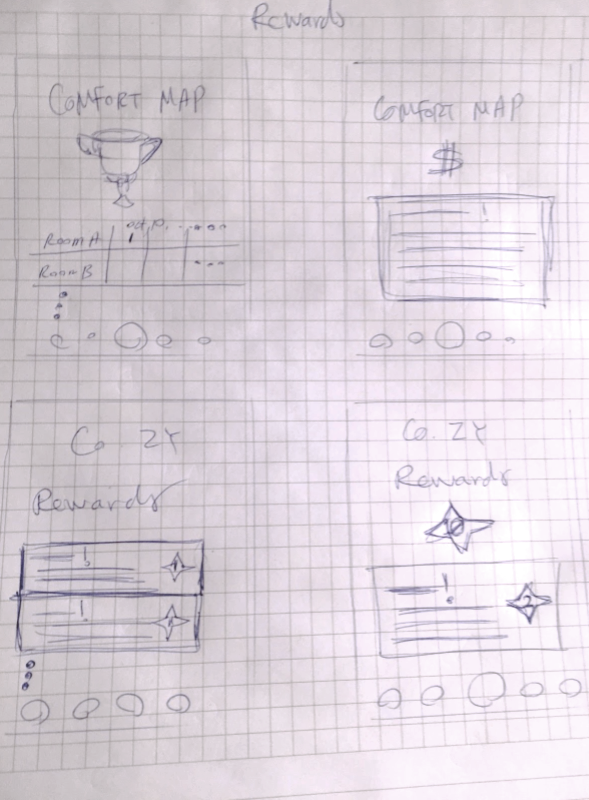 Rewards
COMFORT MAP
Room A
Room B
COMFORT MAP
$
!
Co. ZY
Rewards
!
!
Co. ZY
Rewards
10
!
2